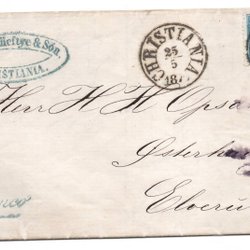 Heftye & Søn.
CHRISTIANIA.
CHRISTIANIA
25
5
Herr H H Opsa
Østerha
Elveru